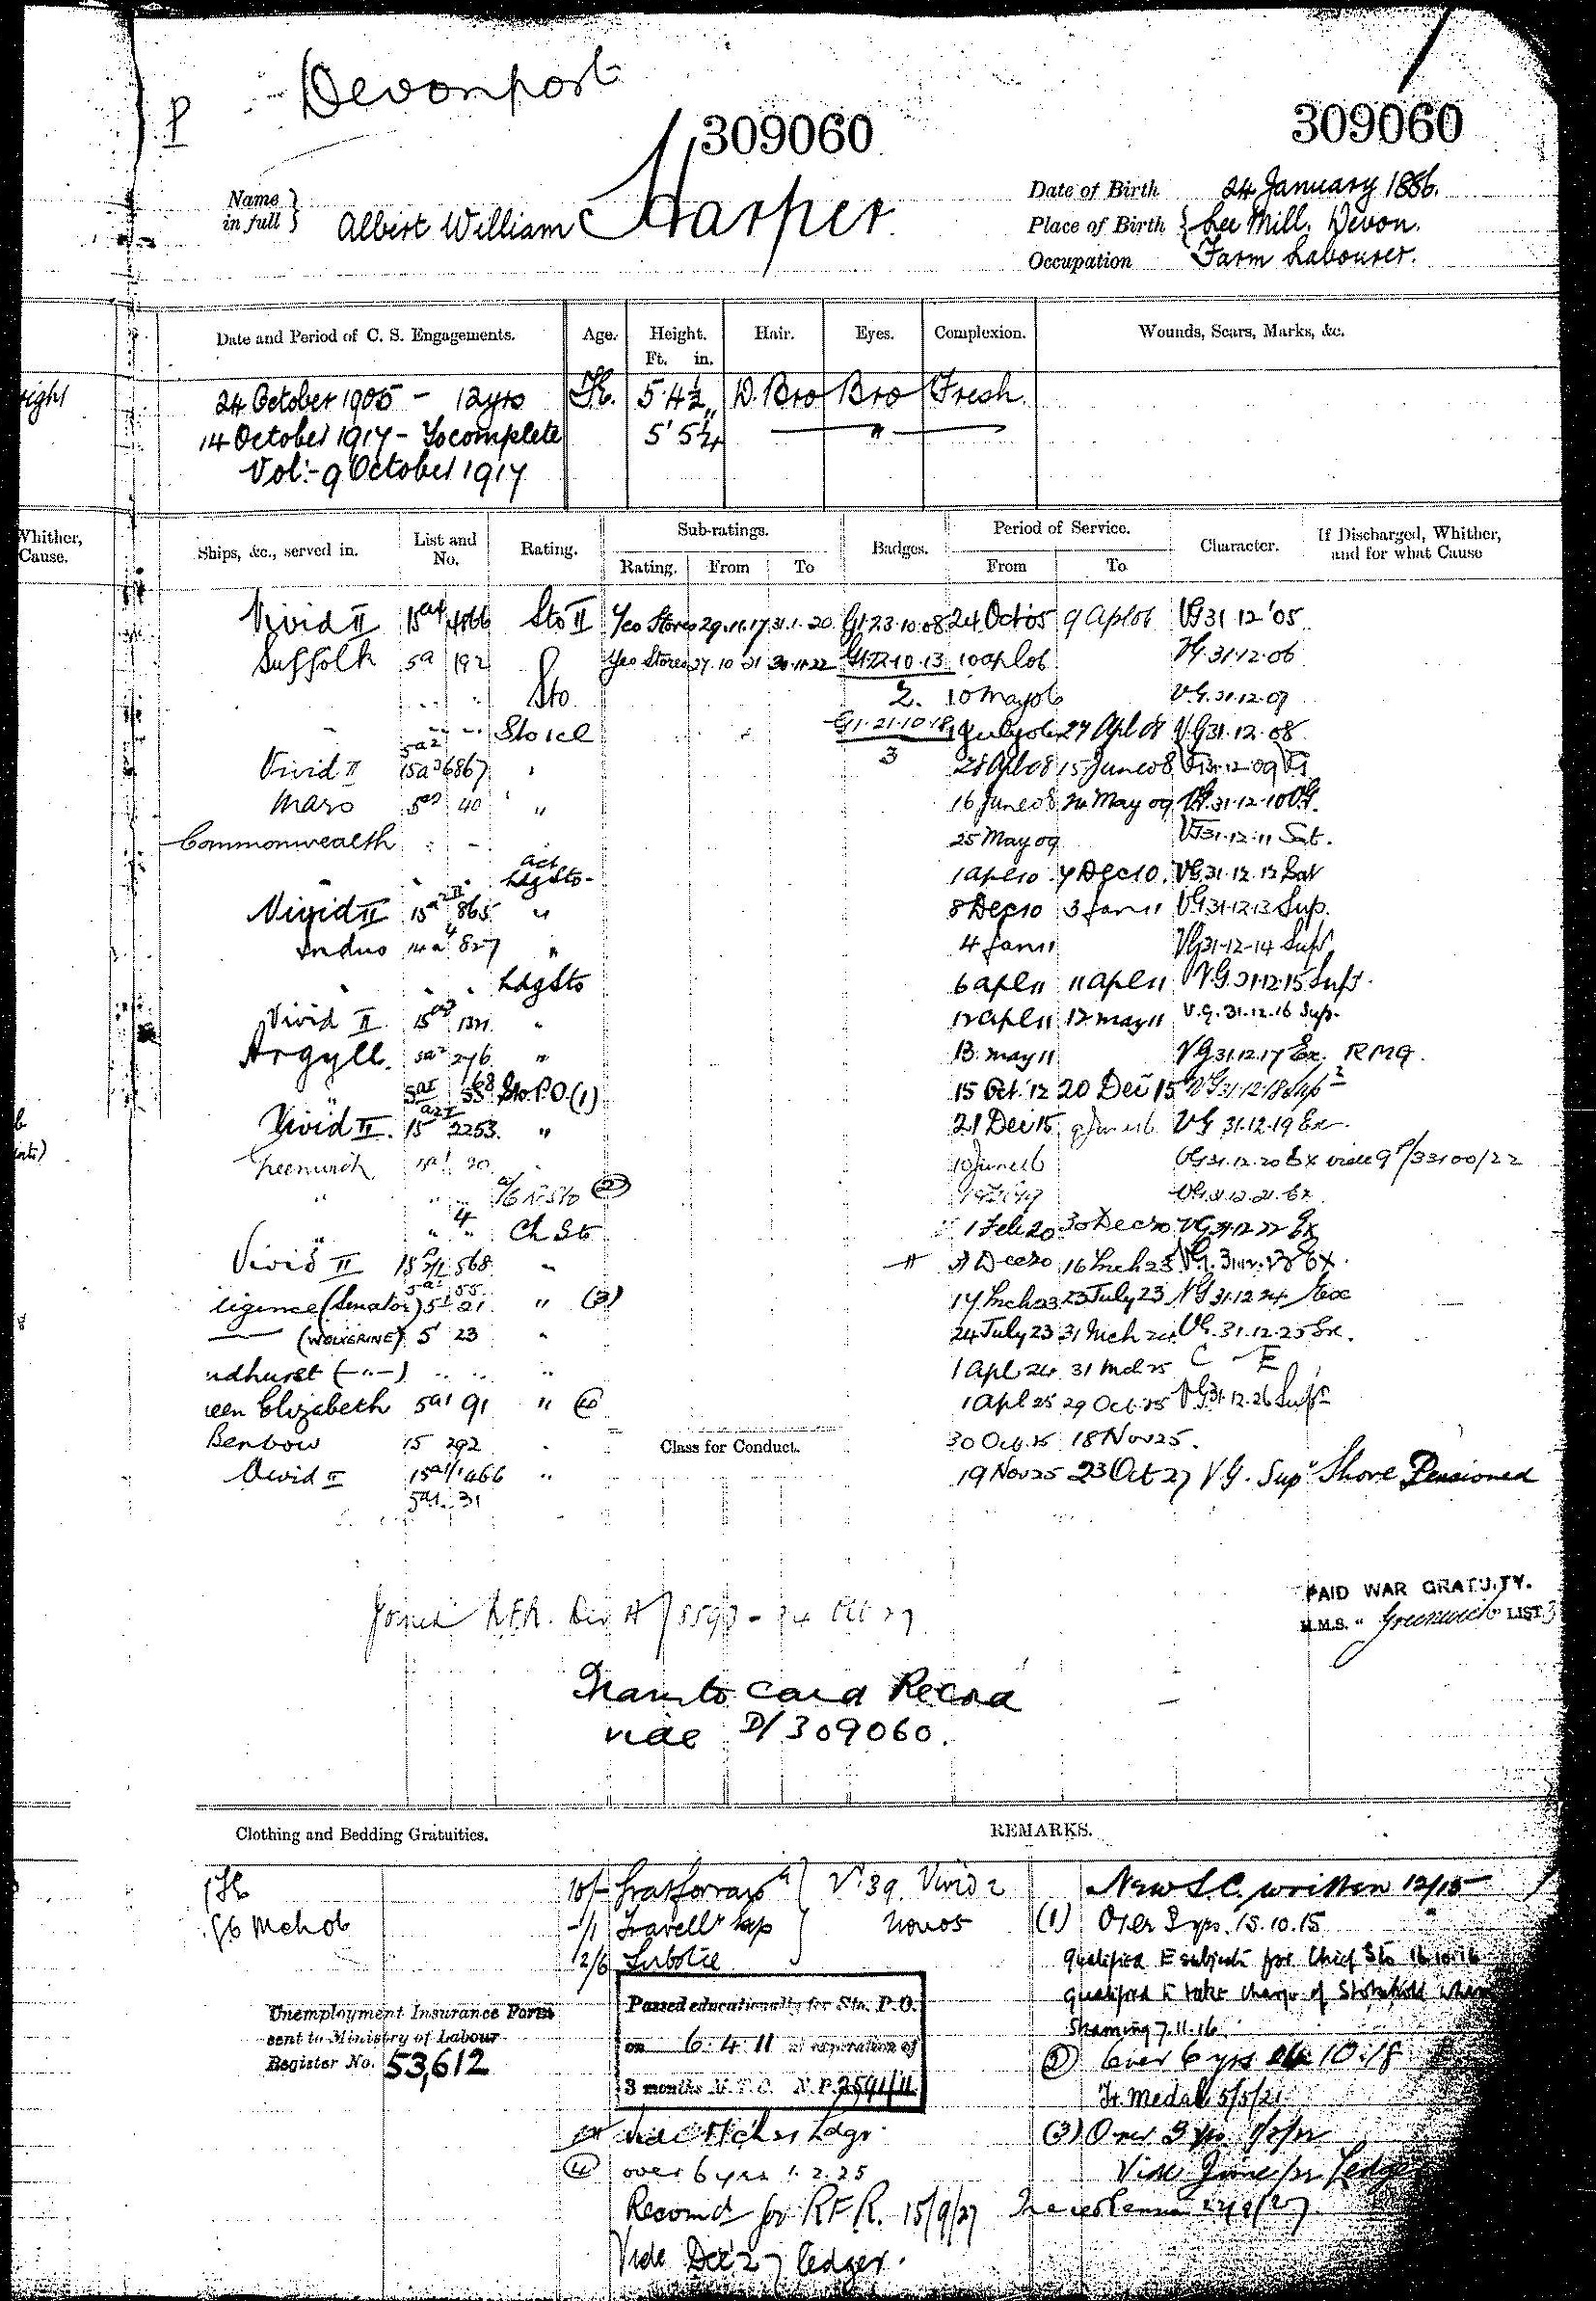 Devonport
P
309060
309060
Name in full } Albert William Harper
Date of Birth 24 January 1886.
Place of Birth } Lee Mill, Devon.
Occupation Farm Labourer.
Date and Period of C. S. Engagements. Age. Height. Ft. in. Hair. Eyes. Complexion. Wounds, Scars, Marks, &c.
24 October 1905 - 12 yrs 5' 4½ D. Bro Bro Fresh.
14 October 1917 - To complete 5' 5¼ "
Vol:- 9 October 1917
Whither, Cause.
Ships, &c., served in. List and No. Rating. Sub-ratings. Rating. From To Badges. Period of Service. From To Character. If Discharged, Whither, and for what Cause
Vivid II 15a4 4866 Sto II Yeo Stores 29.11.17 31.1.20 G1.23.10.08 24 Oct 05 9 Apl 06 VG 31.12.'05
Suffolk 5a 192 Yeo Stores 27.10.21 30.11.22 G1.22.10.13 10 Apl 06 VG.31.12.06
" " Sto 2. 10 May 06 V.G.31.12.07
" " Sto 1cl G1.21.10.18 1 July 06 27 Apl 08 VG 31.12.08
3
Vivid II 15a3 6867 " 28 Apl 08 15 June 08 VG 31.12.09 VG
Mars 5a2 40 " 16 June 08 24 May 09 VG.31.12.10 VG.
Commonwealth 25 May 09 VG 31.12.11 Sat.
" Act Ldg Sto 1 Apl 10 7 Dec 10. VG.31.12.12 Sat
Vivid II 15a2II 865 " 8 Dec 10 3 Jan 11 VG 31.12.13 Sup.
Indus 14a4 827 " 4 Jan 11 VG 31-12-14 Sup.
" " Ldg Sto 6 Apl 11 11 Apl 11 V.G.31.12.15 Sup.
Vivid II 15a3 " 12 Apl 11 12 May 11 V.G.31.12.16 Sup.
Argyll. 5a2 276 " 13. May 11 VG 31.12.17 Ex. RMG.
" Sto. P.O. (1) 15 Oct. '12 20 Dec 15 VG 31.12.18 Sup
Vivid II. 15a2I 2253. " 21 Dec 15 9 June 16 VG 31.12.19 Ex
Greenwich 5a1 20 10 June 16 VG 31.12.20 Ex vide 9P/33100/22
" " (2) VG.31.12.21.Ex
" 4 " Ch Sto 1 Feb 20 30 Dec 20 VG 31.12.22 Ex
Vivid II 568 " 31 Dec 20 16 Mch 23 VG. Ex.
5a1 55
ligence (Senator) 5' 21 " (3) 17 Mch 23 23 July 23 VG 31.12.24 Exc
" (WOLVERINE) 5' 23 " 24 July 23 31 Mch 24 VG.31.12.25 Ex.
ndhurst (-"-) " " " 1 Apl 24 31 Mch 25 C - E
een Elizabeth 5a1 91 " (4) 1 Apl 25 29 Oct. 25 VG 31.12.26 Sup
Benbow 15 292 " 30 Oct. 25 18 Nov 25.
Class for Conduct.
Vivid II 15a1/1466 " 19 Nov 25 23 Oct 27 V.G. Sup Shore Pensioned
5a1. 31
Joined R.F.R. Dev 24 Oct 27
PAID WAR GRATUITY.
H.M.S. " Greenwich " LIST 3
Trans to Card Record
vide D/309060.
Clothing and Bedding Gratuities. REMARKS.
26 Mch 06
Vivid 2
Nov 05
New S.C. written 12/15
(1) Over 3 yrs. 15.10.15
Qualified E subjects for Chief Sto 16.10.16
Qualified to take charge of Stokehold when
Steaming 7.11.16.
(2) Over 6 yrs 10.18
Unemployment Insurance Form
sent to Ministry of Labour
Register No. 53,612
Passed educationally for Sto. P.O.
on 6.4.11 at expiration of
3 months M.T.C. N.P.2591/11.
Medal 5/5/21
(3) Over 3 yrs
(4) over 6 yrs 1.2.25
Vide June Ledger
Recomd for R.F.R. 15/9/27
Vide Dec. 27 ledger.